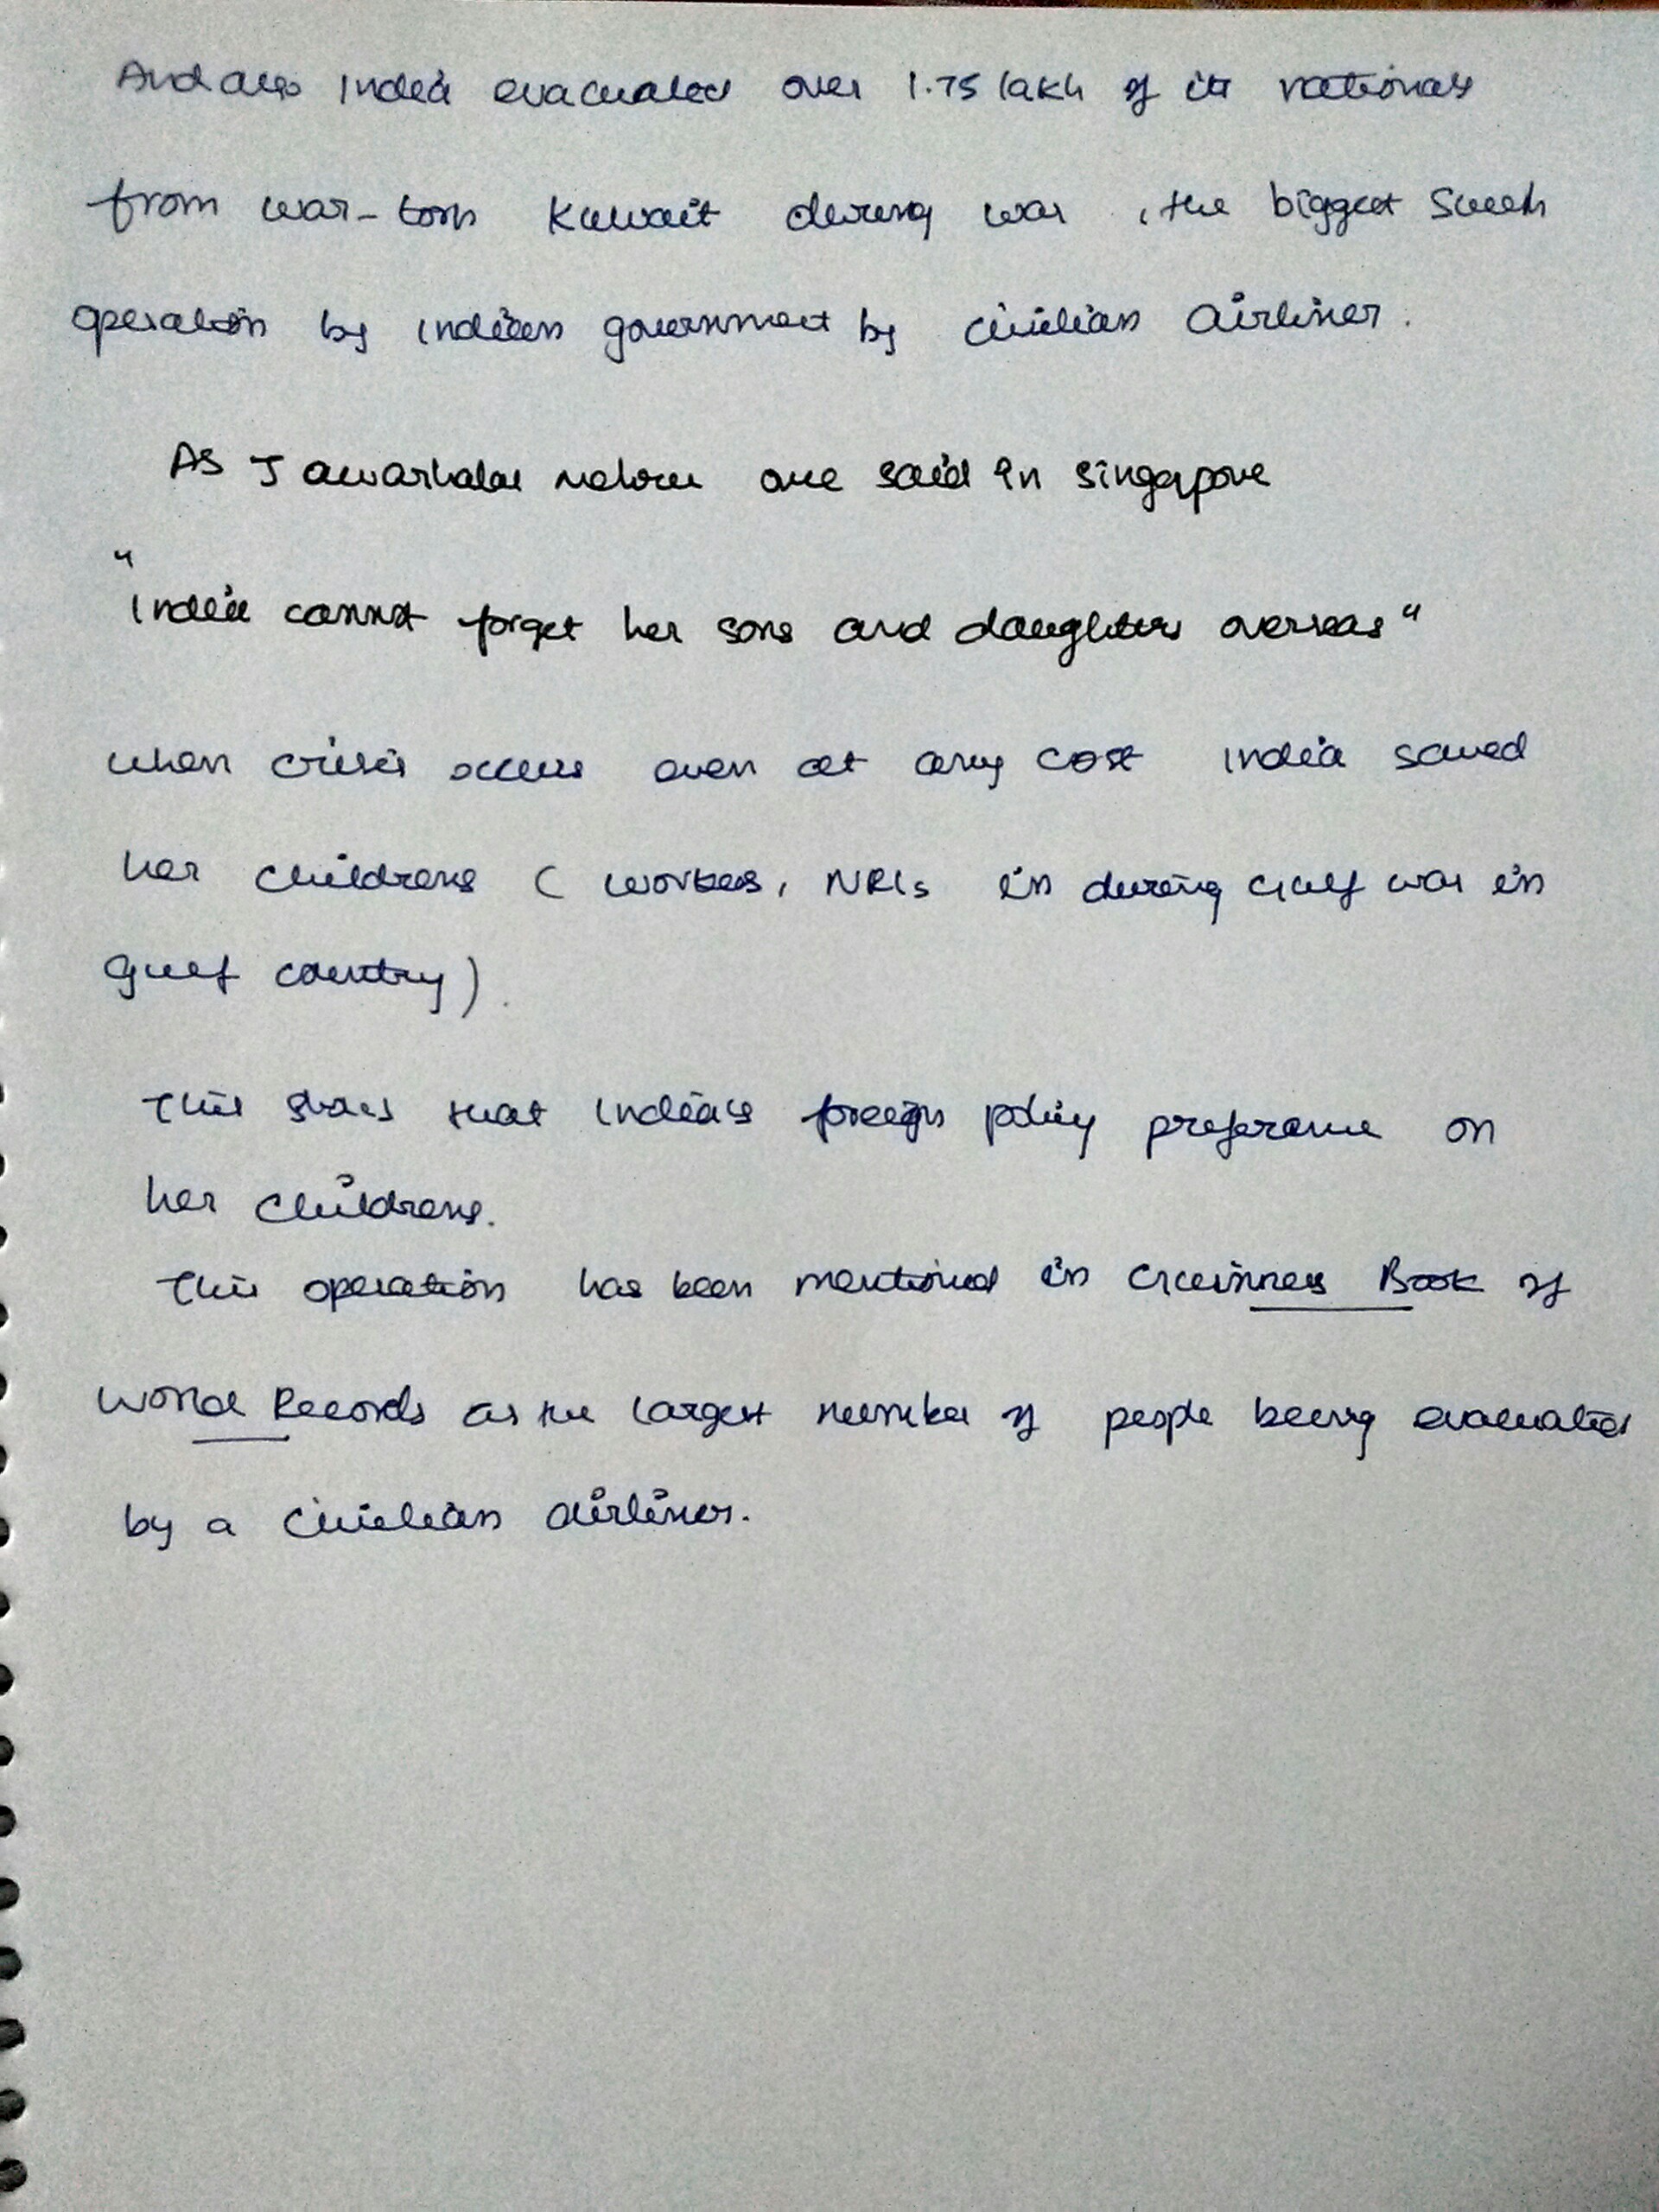 And also India evacuated over 1.75 lakh of its nationals
from war-torn Kuwait during war, the biggest such
operation by Indian government by civilian Airliner.
As Jawarhalal nehru once said in singapore
"
India cannot forget her sons and daughters overseas"
when crisis occurs even at any cost India saved
her childrens ( workers, NRIs in during Gulf war in
gulf country).
This shows that India's foreign policy preferance on
her childrens.
This operation has been mentioned in Guinness Book of
World Records as the largest number of people being evacuated
by a civilian airliner.